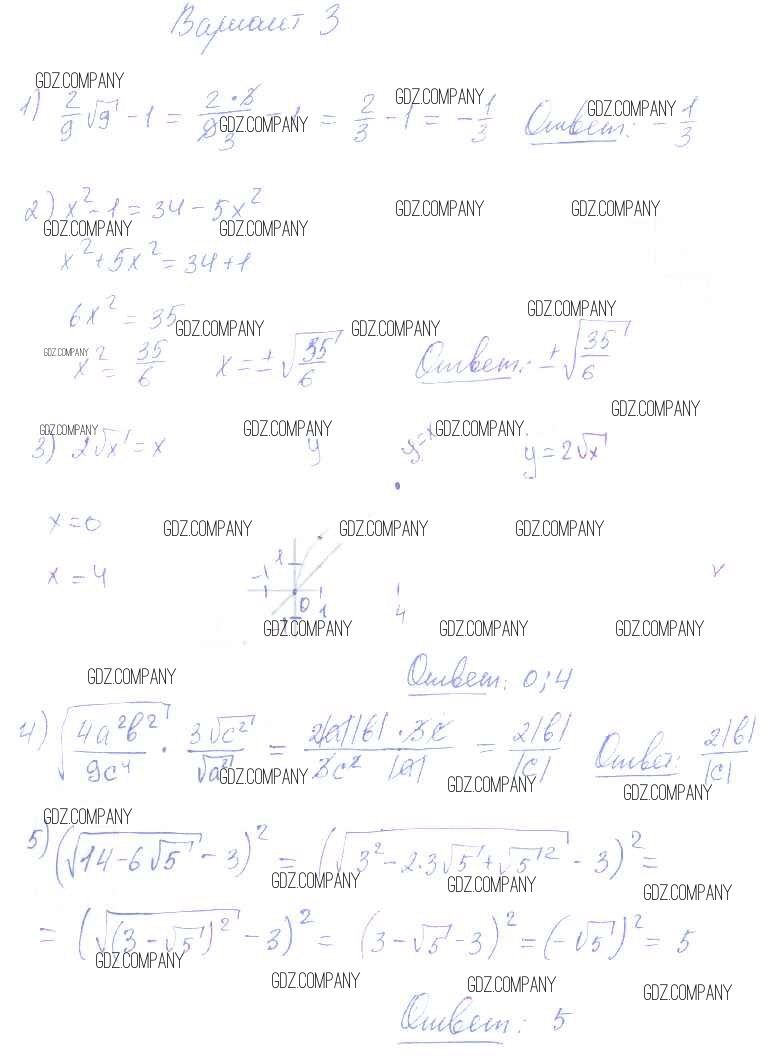 Вариант 3
GDZ.COMPANY
GDZ.COMPANY
GDZ.COMPANY
1) 2/9 √9 - 1 = 2·3/9 3 - 1 = 2/3 - 1 = -1/3 Ответ: -1/3
GDZ.COMPANY
2) x² - 1 = 34 - 5x²
GDZ.COMPANY GDZ.COMPANY
GDZ.COMPANY GDZ.COMPANY
x² + 5x² = 34 + 1
6x² = 35
GDZ.COMPANY
GDZ.COMPANY GDZ.COMPANY
GDZ.COMPANY
x² = 35/6 x = ±√(35/6) Ответ: ±√(35/6)
GDZ.COMPANY
GDZ.COMPANY GDZ.COMPANY GDZ.COMPANY
3) 2√x = x y y=x y = 2√x
x = 0 GDZ.COMPANY GDZ.COMPANY GDZ.COMPANY
x = 4 -1 1 0 1 4 x
GDZ.COMPANY GDZ.COMPANY GDZ.COMPANY
GDZ.COMPANY
Ответ: 0; 4
4) √(4a²b²/9c⁴) · 3√c²/√a² = 2|a||b|·3c/3c²|a| = 2|b|/|c| Ответ: 2|b|/|c|
GDZ.COMPANY GDZ.COMPANY GDZ.COMPANY
GDZ.COMPANY
5) (√(14-6√5) - 3)² = (√(3² - 2·3√5 + √5²) - 3)² =
GDZ.COMPANY GDZ.COMPANY GDZ.COMPANY
= (√((3-√5)²) - 3)² = (3 - √5 - 3)² = (-√5)² = 5
GDZ.COMPANY GDZ.COMPANY GDZ.COMPANY GDZ.COMPANY
Ответ: 5